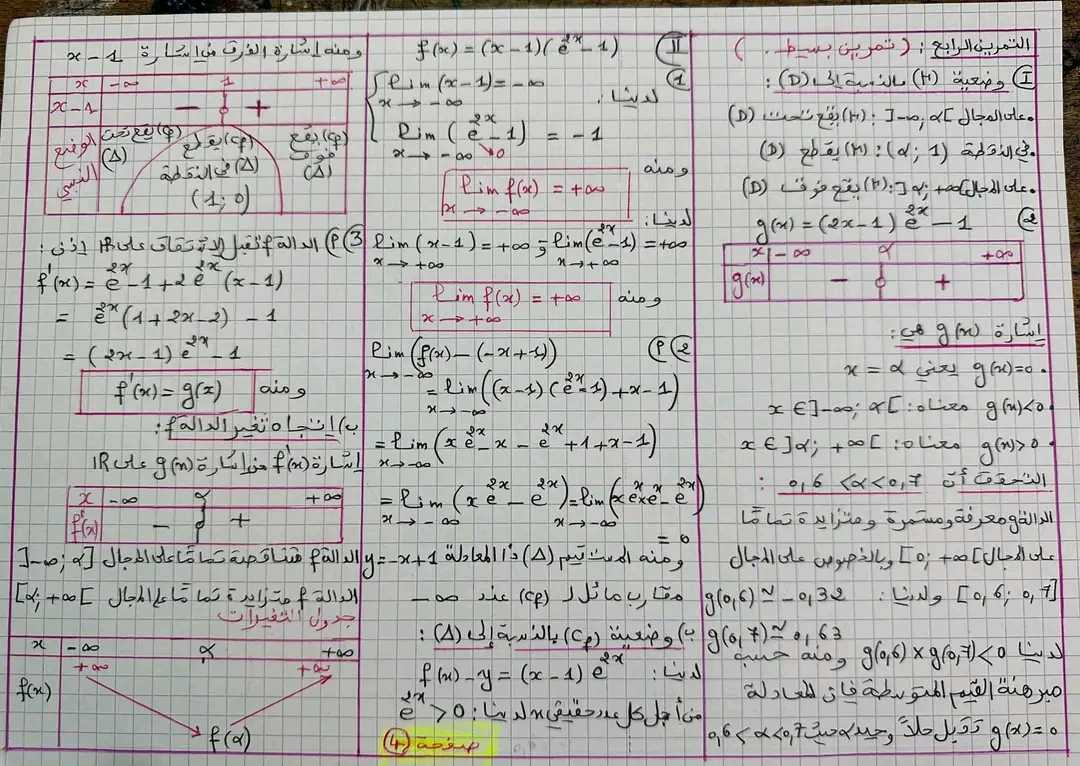 التمرين الرابع: (تمرين بسيط.)
I) وضعية (H) بالنسبة إلى (D):
على المجال ]-∞; α[: (H) يقع تحت (D)
في النقطة (α; 1): (H) يقطع (D)
على المجال ]α; +∞[: (H) يقع فوق (D)
2) g(x) = (2x-1)e^{2x} - 1
x -∞ α +∞
g(x) - 0 +
إشارة g(x) هي:
g(x)=0 يعني x = α
g(x)<0 معناه: x ∈ ]-∞; α[
g(x)>0 معناه: x ∈ ]α; +∞[
التحقق أن 0,6 < α < 0,7 :
الدالة g معرفة ومستمرة ومتزايدة تمامًا
على المجال ]0; +∞[ وبالخصوص على المجال
[0,6; 0,7] ولدينا: g(0,6) ≃ -0,32
g(0,7) ≃ 0,63
لدينا g(0,6) × g(0,7) < 0 ومنه حسب
مبرهنة القيم المتوسطة فإن المعادلة
g(x)=0 تقبل حلاً وحيد α حيث 0,6 < α < 0,7
II) f(x) = (x-1)(e^{2x} - 1)
1) لدينا: lim (x-1) = -∞
x → -∞
lim (e^{2x} - 1) = -1
x → -∞ 0
ومنه lim f(x) = +∞
x → -∞
لدينا:
lim (x-1) = +∞ و lim (e^{2x} - 1) = +∞
x → +∞ x → +∞
ومنه lim f(x) = +∞
x → +∞
2) P) lim (f(x) - (-x+1))
x → -∞
= lim ((x-1)(e^{2x} - 1) + x - 1)
x → -∞
= lim (x e^{2x} - x - e^{2x} + 1 + x - 1)
x → -∞
= lim (x e^{2x} - e^{2x}) = lim (x e^x × e^x - e^{2x})
x → -∞ x → -∞
= 0
ومنه المستقيم (Δ) ذا المعادلة y = -x+1
مقارب مائل لـ (Cf) عند -∞
ب) وضعية (Cf) بالنسبة إلى (Δ):
لدينا: f(x) - y = (x-1) e^{2x}
من أجل كل عدد حقيقي x لدينا: e^{2x} > 0
صفحة (4)
ومنه إشارة الفرق من إشارة x-1
x -∞ 1 +∞
x-1 - 0 +
الوضع النسبي (Cf) يقع تحت (Δ) (Cf) يقطع (Δ) في النقطة (1; 0) (Cf) يقع فوق (Δ)
3) P) الدالة f تقبل الاشتقاق على IR إذن:
f'(x) = e^{2x} - 1 + 2e^{2x}(x-1)
= e^{2x}(1+2x-2) - 1
= (2x-1)e^{2x} - 1
ومنه f'(x) = g(x)
ب) إتجاه تغير الدالة f:
إشارة f'(x) من إشارة g(x) على IR
x -∞ α +∞
f'(x) - 0 +
الدالة f متناقصة تمامًا على المجال ]-∞; α]
الدالة f متزايدة تمامًا على المجال [α; +∞[
جدول التغيرات
x -∞ α +∞
f(x) +∞ f(α) +∞